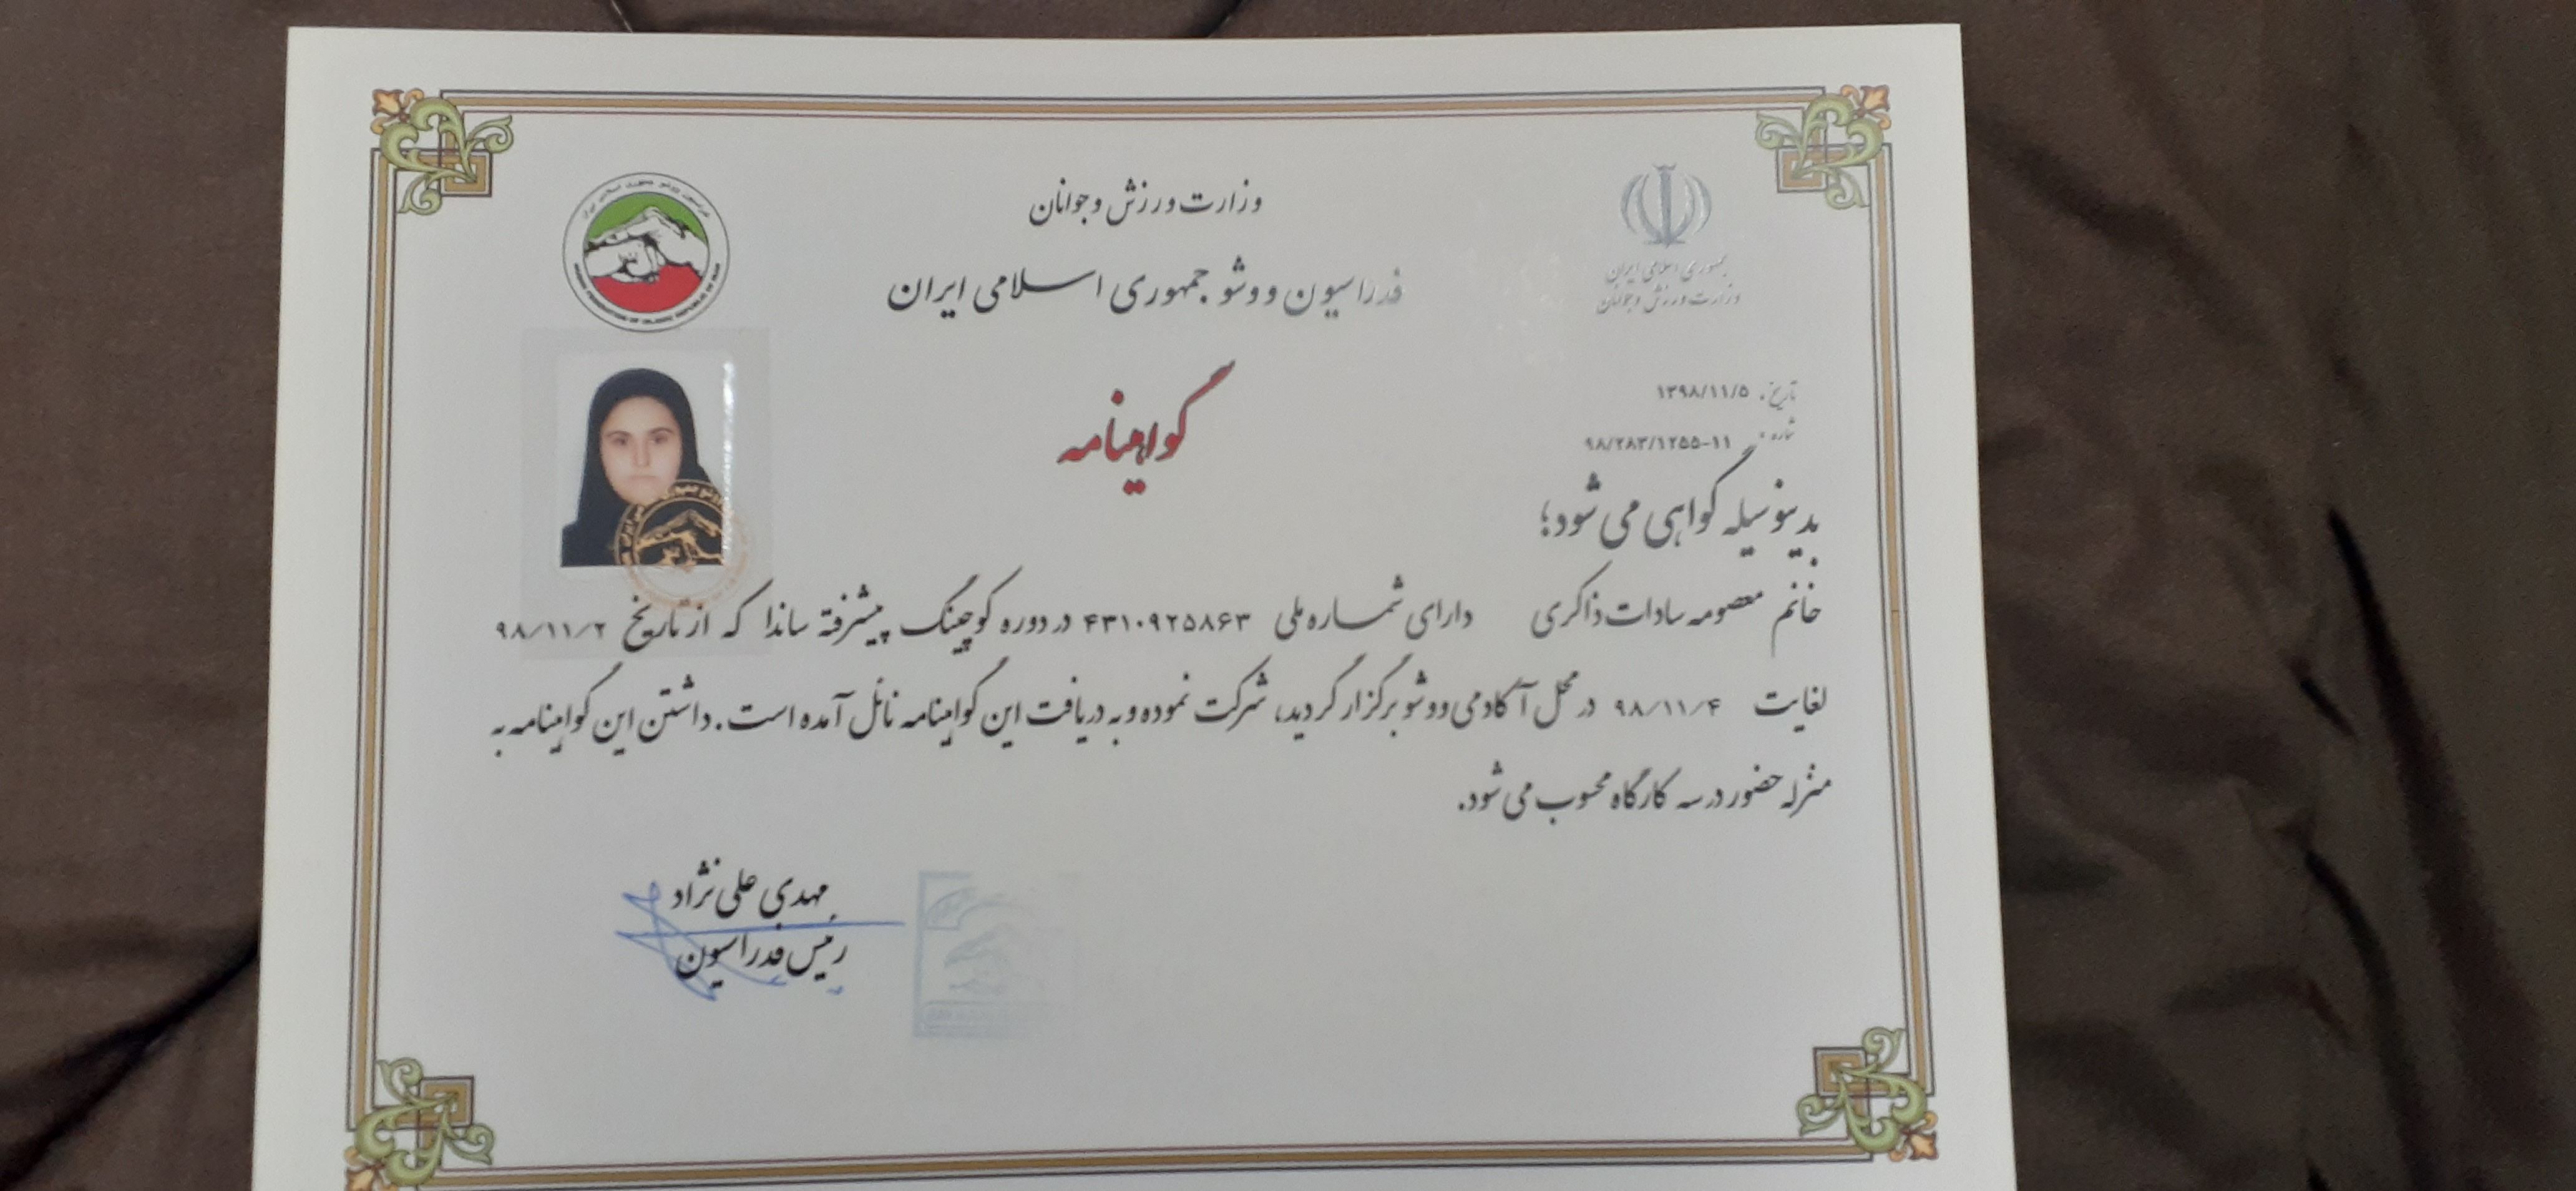 وزارت ورزش و جوانان
فدراسیون ووشو جمهوری اسلامی ایران
جمهوری اسلامی ایران
وزارت ورزش و جوانان
گواهینامه
تاریخ: ۱۳۹۸/۱۱/۵
شماره: ۹۸/۲۸۳/۱۲۵۵-۱۱
بدینوسیله گواهی می شود؛
خانم معصومه سادات ذاکری دارای شماره ملی ۴۳۱۰۹۲۵۸۶۳ در دوره کوچینگ پیشرفته ساندا که از تاریخ ۹۸/۱۱/۲
لغایت ۹۸/۱۱/۴ در محل آکادمی ووشو برگزار گردید، شرکت نموده و به دریافت این گواهینامه نائل آمده است. داشتن این گواهینامه به
منزله حضور در سه کارگاه محسوب می شود.
مهدی علی نژاد
رئیس فدراسیون